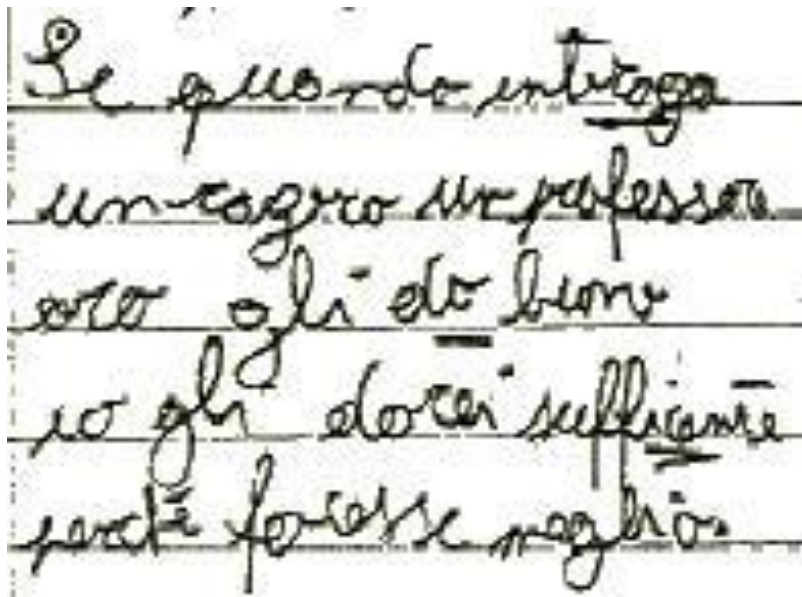 Se quando intiroga
un ragazzo un professore
oro gli do bion
io gli darei sufficente
perché facesse meglio.